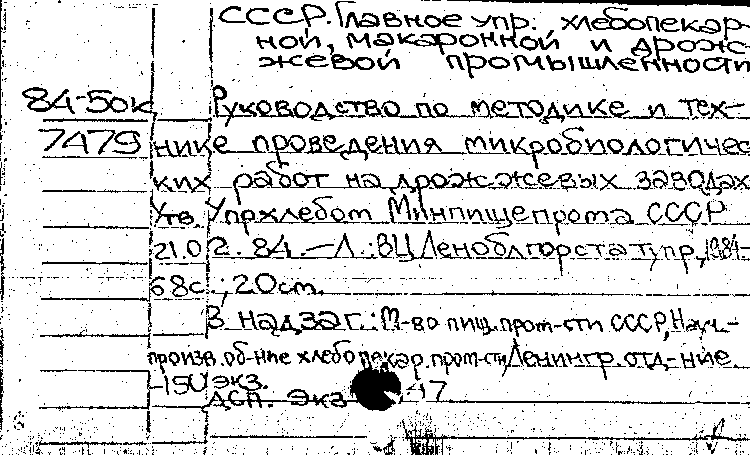 СССР. Главное упр. хлебопекар-
ной, макаронной и дрож-
жевой промышленности
84-50к Руководство по методике и тех-
7479 нике проведения микробиологичес
ких работ на дрожжевых заводах
Утв. Упрхлебом Минпищепрома СССР
21.02.84. — Л.: ВЦ Леноблгорстатупр, 1984.-
68с.; 20см.
В надзаг.: М-во пищ. пром-сти СССР, Науч.-
произв. об-ние хлебопекар. пром-сти, Ленингр. отд-ние
-150 экз.
ДСП. Экз 47